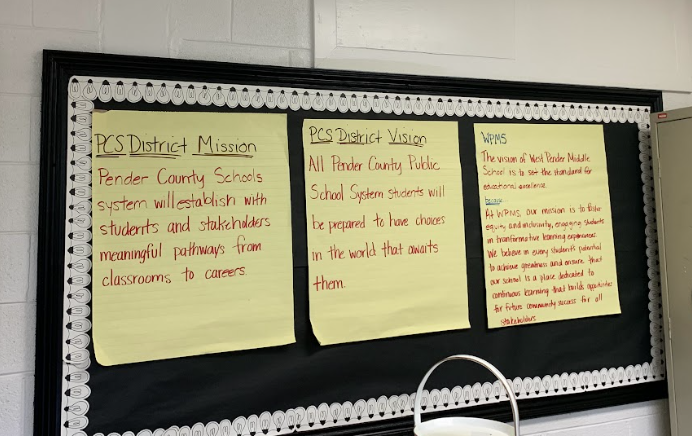 PCS District Mission
Pender County Schools
system will establish with
students and stakeholders
meaningful pathways from
classrooms to careers.
PCS District Vision
All Pender County Public
School System students will
be prepared to have choices
in the world that awaits
them.
WPMS
The vision of West Pender Middle
School is to set the standard for
educational excellence.
At WPMS, our mission is to foster
equity and inclusivity, engaging students
in transformative learning experiences.
We believe in every student's potential
to achieve greatness and ensure that
our school is a place dedicated to
continuous learning that builds opportunities
for future community success for all
stakeholders.